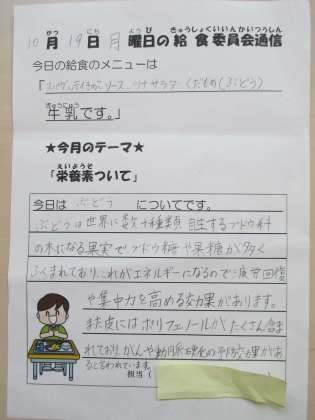 10月19日月曜日の給食委員会通信
がつ にち ようび きゅうしょくいいんかいつうしん
今日の給食のメニューは
「スパゲッティきのこソース、ツナサラダ、くだもの(ぶどう)
ぎゅうにゅう
牛乳です。」
★今月のテーマ★
えいようそ
「栄養素ついて」
今日は ぶどう についてです。
ぶどうは世界に数十種類自生するブドウ科
の木になる果実でブドウ糖や果糖が多く
ふくまれており、これがエネルギーになるので疲労回復
や集中力を高める効果があります。
また皮にはポリフェノールがたくさん含ま
れており、がんや動脈硬化の予防効果があ
ると言われています。
担当(